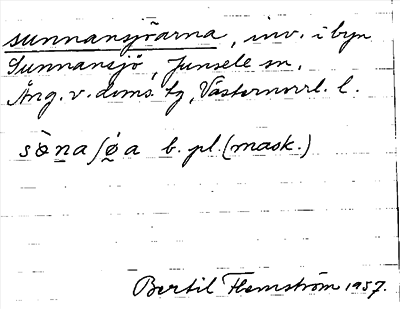 sunnansjöarna, inv. i byn
Sunnansjö, Junsele sn,
Ång. v. doms. tg, Västernorrl. l.
sὸ̞na ʃǿ̞a b. pl. (mask.)
Bertil Flemström 1957.